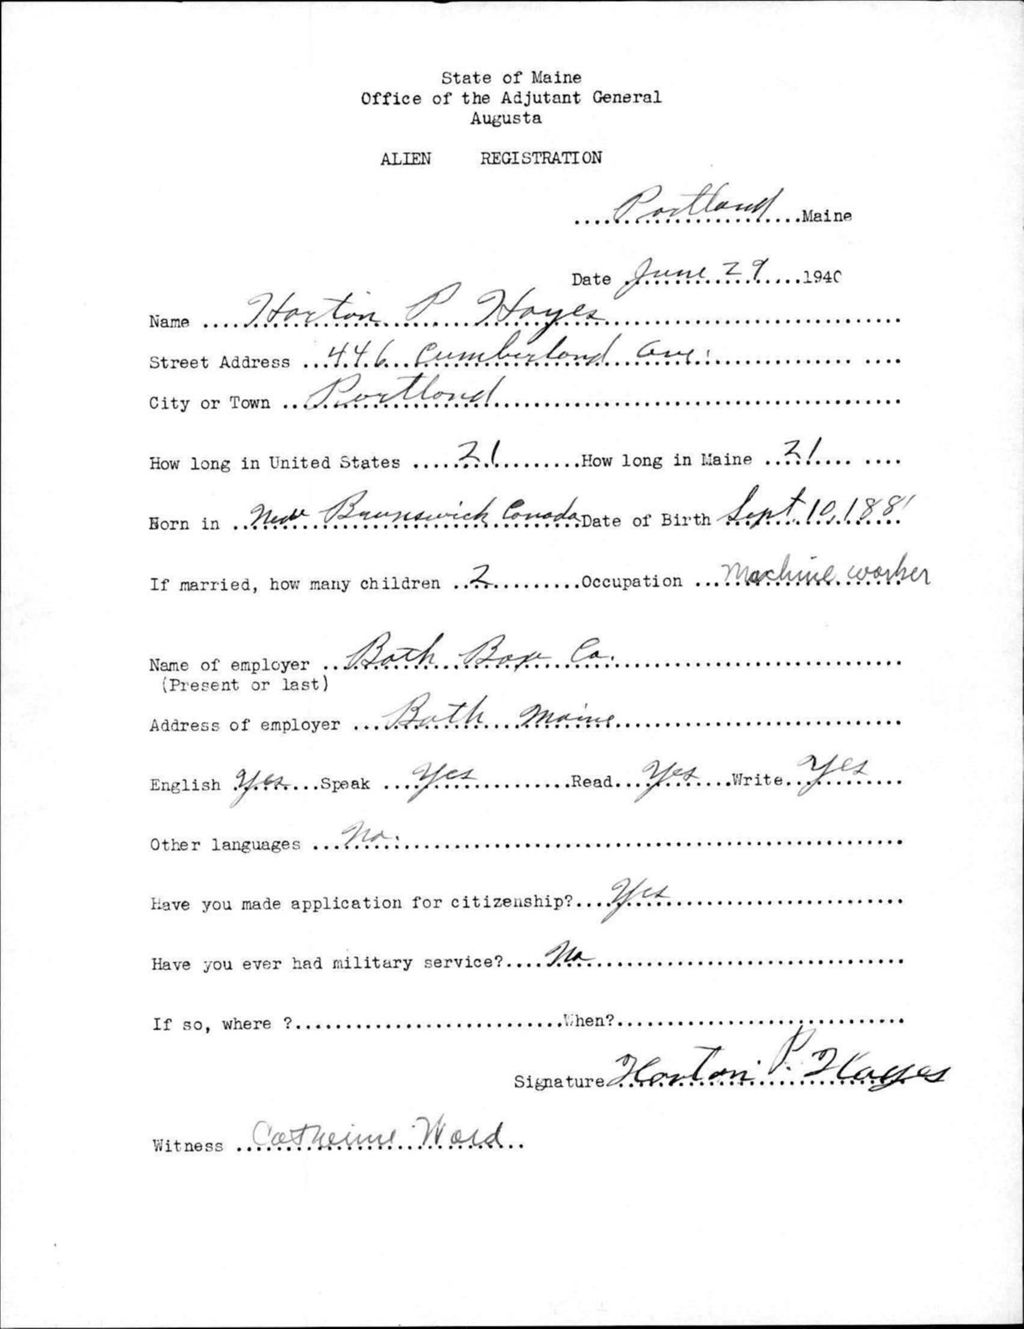 State of Maine
Office of the Adjutant General
Augusta
ALIEN REGISTRATION
....Portland....Maine
Date June 29....1940
Name ....Horton P Hayes....
Street Address ...446 Cumberland Ave....
City or Town ...Portland....
How long in United States ....21....How long in Maine ..21....
Born in ..New Brunswick Canada Date of Birth Sept. 10, 188
If married, how many children ..2....Occupation ...Machine worker
Name of employer ..Bath Box Co....
(Present or last)
Address of employer ...Bath Maine....
English Yes...Speak ...Yes....Read...Yes...Write..Yes....
Other languages ...No....
Have you made application for citizenship?....Yes....
Have you ever had military service?....No....
If so, where ?....When?....
Signature Horton P. Hayes
Witness ..Catherine Ward..